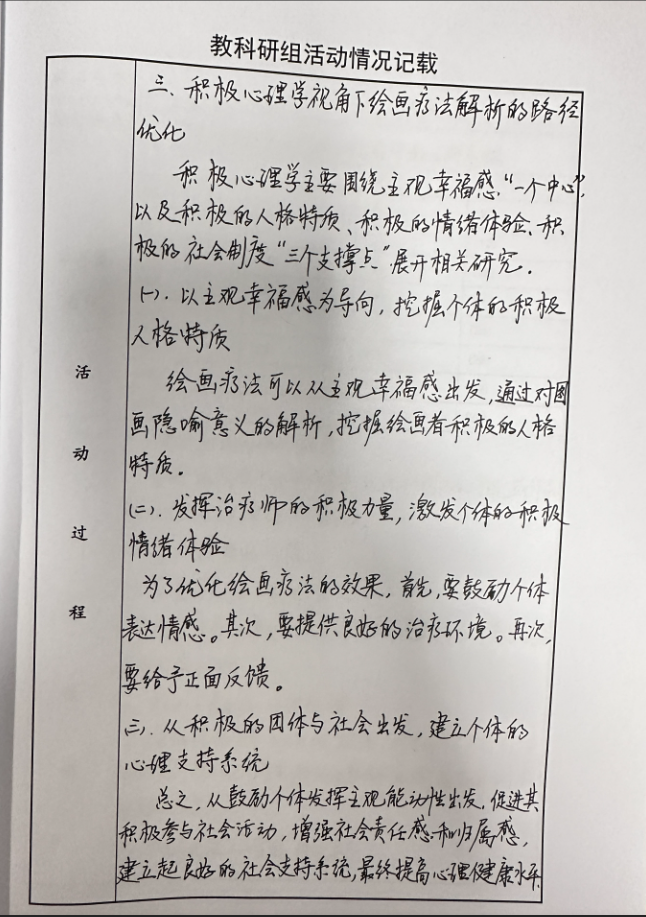 教科研组活动情况记载
三、积极心理学视角下绘画疗法解析的路径
优化
积极心理学主要围绕主观幸福感“一个中心”,
以及积极的人格特质、积极的情绪体验、积
极的社会制度“三个支撑点”展开相关研究.
(一). 以主观幸福感为导向, 挖掘个体的积极
人格特质
绘画疗法可以从主观幸福感出发,通过对图
画隐喻意义的解析,挖掘绘画者积极的人格
特质。
(二). 发挥治疗师的积极力量,激发个体的积极
情绪体验
为了优化绘画疗法的效果, 首先,要鼓励个体
表达情感。其次,要提供良好的治疗环境。再次,
要给予正面反馈。
三). 从积极的团体与社会出发, 建立个体的
心理支持系统
总之, 从鼓励个体发挥主观能动性出发, 促进其
积极参与社会活动, 增强社会责任感和归属感,
建立起良好的社会支持系统,最终提高心理健康水平
活
动
过
程